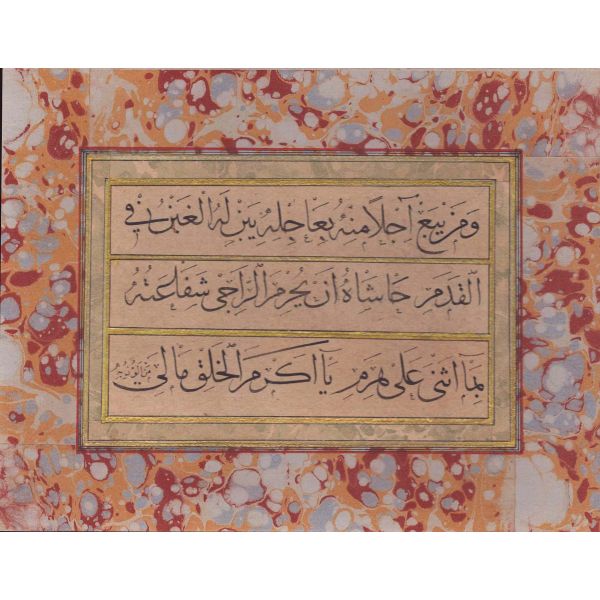 ومن يبع آجلا منه بعاجله يبن له الغبن في
القدم حاشاه ان يحرم الراجى شفاعته
بما اثنى على هرم يا اكرم الخلق مالى